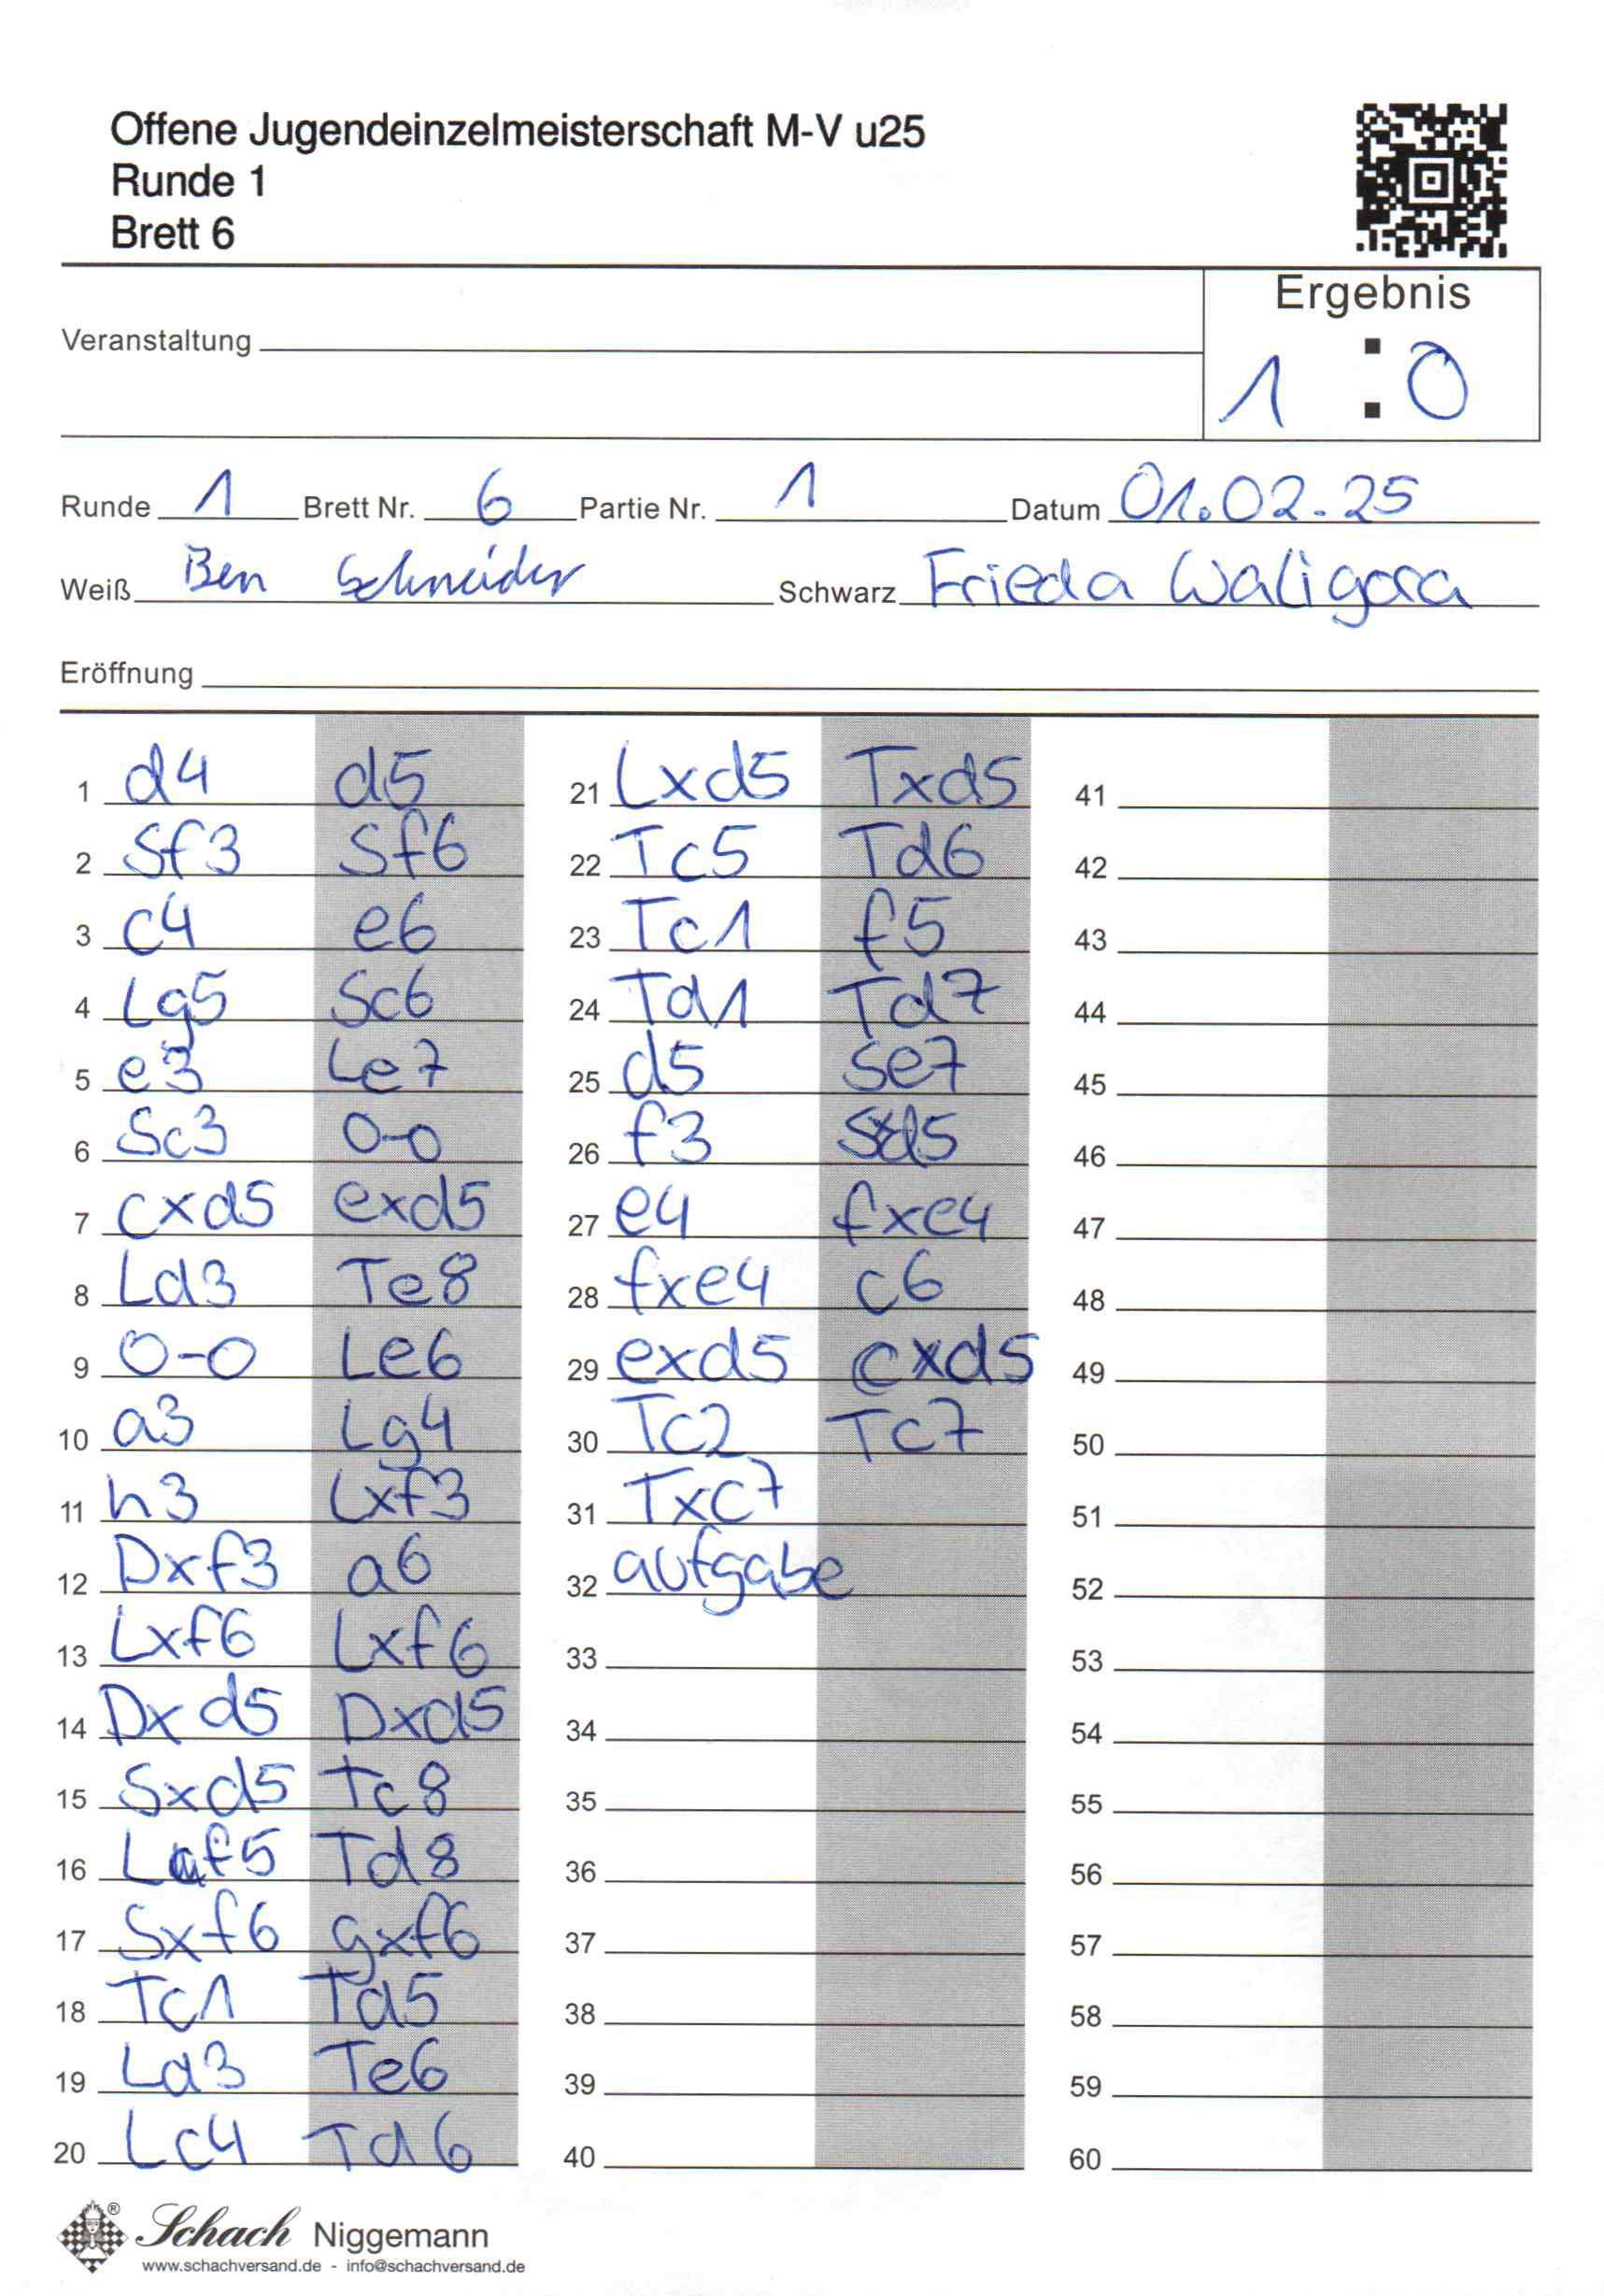 Offene Jugendeinzelmeisterschaft M-V u25
Runde 1
Brett 6
Ergebnis
Veranstaltung
1 : 0
Runde 1 Brett Nr. 6 Partie Nr. 1 Datum 01.02.25
Weiß Ben Schneider Schwarz Frieda Waligora
Eröffnung
1 d4 d5
2 Sf3 Sf6
3 c4 e6
4 Lg5 Sc6
5 e3 Le7
6 Sc3 0-0
7 cxd5 exd5
8 Ld3 Te8
9 0-0 Le6
10 a3 Lg4
11 h3 Lxf3
12 Dxf3 a6
13 Lxf6 Lxf6
14 Dxd5 Dxd5
15 Sxd5 Tc8
16 Lf5 Td8
17 Sxf6 gxf6
18 Tc1 Td5
19 Ld3 Te6
20 Lc4 Td6
21 Lxd5 Txd5
22 Tc5 Td6
23 Tc1 f5
24 Td1 Td7
25 d5 Se7
26 f3 Sxd5
27 e4 fxe4
28 fxe4 c6
29 exd5 cxd5
30 Tc2 Tc7
31 Txc7
32 aufgabe
33
34
35
36
37
38
39
40
41
42
43
44
45
46
47
48
49
50
51
52
53
54
55
56
57
58
59
60
® Schach Niggemann
www.schachversand.de - info@schachversand.de